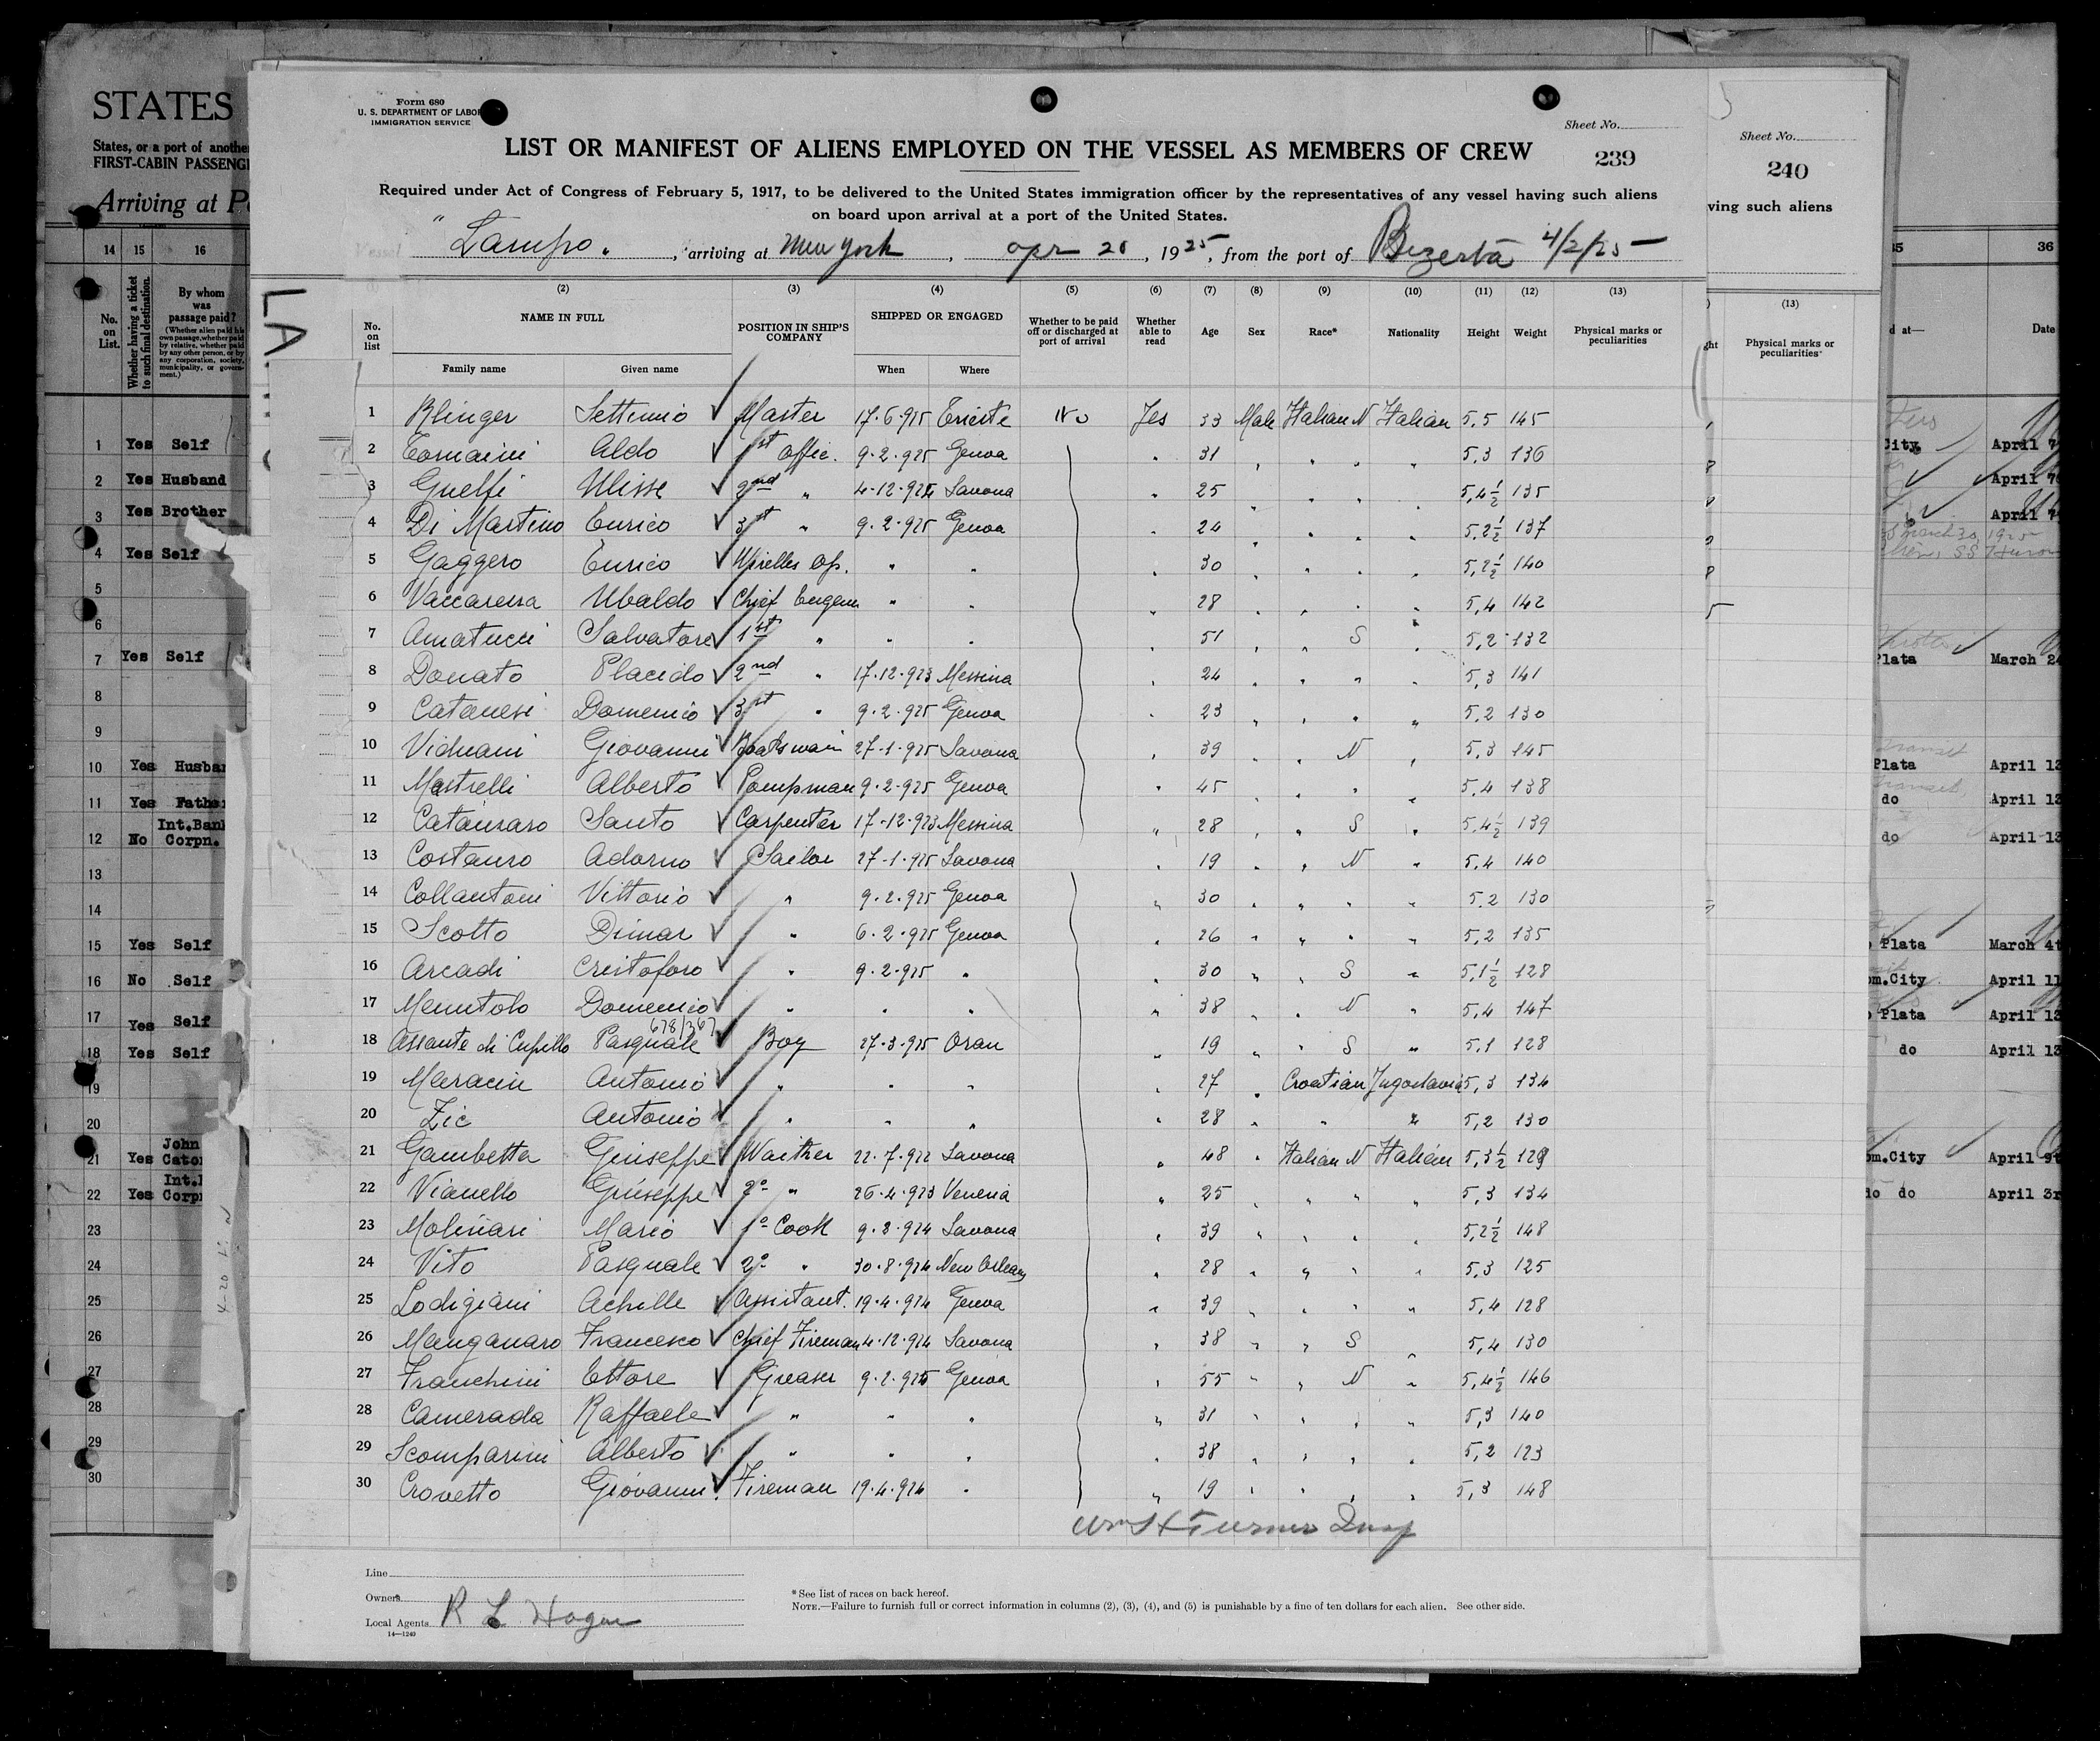 Form 680
U. S. DEPARTMENT OF LABOR
IMMIGRATION SERVICE
Sheet No.
239
LIST OR MANIFEST OF ALIENS EMPLOYED ON THE VESSEL AS MEMBERS OF CREW
Required under Act of Congress of February 5, 1917, to be delivered to the United States immigration officer by the representatives of any vessel having such aliens
on board upon arrival at a port of the United States.
Vessel "Lampo", arriving at New York, Apr 20, 1925, from the port of Bizerta 4/2/25
(2) (3) (4) (5) (6) (7) (8) (9) (10) (11) (12) (13)
No. on list NAME IN FULL POSITION IN SHIP'S COMPANY SHIPPED OR ENGAGED Whether to be paid off or discharged at port of arrival Whether able to read Age Sex Race* Nationality Height Weight Physical marks or peculiarities
Family name Given name When Where
1 Settimio Master 17.6.915 Trieste No Yes 33 Male Italian N Italian 5,5 145
2 Tomaini Aldo 1st Offic. 9.2.925 Genoa 31 5,3 136
3 Guelfi Ulisse 2nd " 4-12.924 Savona 25 5,4½ 135
4 Di Martino Enrico 3st " 9.2.925 Genoa 24 5,2½ 137
5 Gaggero Enrico Wirelles Op. " " 30 5,2½ 140
6 Ubaldo Chief Engen " " 28 5,4 142
7 Amatucci Salvatore 1st " " " 51 S 5,2 132
8 Donato Placido 2nd " 17.12.923 Messina 24 " 5,3 141
9 Catanesi Domenico 3st " 9.2.925 Genoa 23 " 5,2 130
10 Viduani Giovanni Boatswain 27-1.925 Savona 39 N 5,3 145
11 Mastrelli Alberto Pompman 9.2.925 Genoa 45 " 5,4 138
12 Catanzaro Santo Carpenter 17-12.923 Messina 28 S 5,4½ 139
13 Costauro Adorno Sailor 27-1.925 Savona 19 N 5,4 140
14 Collantoni Vittorio " 9.2.925 Genoa 30 " 5,2 130
15 Scotto Dimar " 6.2.925 Genoa 26 " 5,2 135
16 Arcadi Cristoforo " 9.2.925 " 30 S 5,1½ 128
17 Menntolo Domenico " " " 38 N 5,4 147
678/367
18 Assante di Cupillo Pasquale Boy 27.3.925 Oran 19 S 5,1 128
19 Maracin Antonio " " " 27 Croatian Jugoslavia 5,3 134
20 Zic Antonio " " " 28 " " 5,2 130
21 Gambetta Giuseppe Waither 22.7.922 Savona 48 Italian N Italian 5,3½ 129
22 Vianello Giuseppe 2° " 26.4.923 Venezia 25 " " 5,3 134
23 Molinari Mario 1° Cook 9.8.924 Savona 39 " " 5,2½ 148
24 Vito Pasquale 2° " 30.8.924 New Orleans 28 " " 5,3 125
25 Lodigiani Achille Assistant. 19.4.924 Genoa 39 " " 5,4 128
26 Manganaro Francesco Chief Fireman 4.12.924 Savona 38 S 5,4 130
27 Franchini Ettore Greaser 9.2.925 Genoa 55 N 5,4½ 146
28 Camerada Raffaele " " " 31 " 5,3 140
29 Scomparini Alberto " " " 38 " 5,2 123
30 Crovetto Giovanni Fireman 19.4.924 " 19 " 5,3 148
Wm H Turner Insp
Line
Owners
Local Agents R L Hagen
14—1240
* See list of races on back hereof.
NOTE.—Failure to furnish full or correct information in columns (2), (3), (4), and (5) is punishable by a fine of ten dollars for each alien. See other side.
STATES
States, or a port of another
FIRST-CABIN PASSENG
Arriving at P
14 15 16
No. on List.
Whether having a ticket to such final destination.
By whom was passage paid?
(Whether alien paid his own passage, whether paid by relative, whether paid by any other person, or by any corporation, society, municipality, or government.)
1 Yes Self
2 Yes Husband
3 Yes Brother
4 Yes Self
5
6
7 Yes Self
8
9
10 Yes Husba
11 Yes Fathe
Int.Ban
12 No Corpn.
13
14
15 Yes Self
16 No Self
17 Yes Self
18 Yes Self
19
20
John
21 Yes Cato
Int.
22 Yes Corp
23
24
25
26
27
28
29
30
LA
Sheet No.
240
ving such aliens
(13)
Physical marks or peculiarities
35 36
d at— Date
City. April 7
April 7
April 7
March 30, 1925
Plata March 2
Transit
Plata April 13
do April 13
do April 13
Plata March 4t
om.City April 11
Plata April 13
do April 13
om.City April 9t
do do April 3r